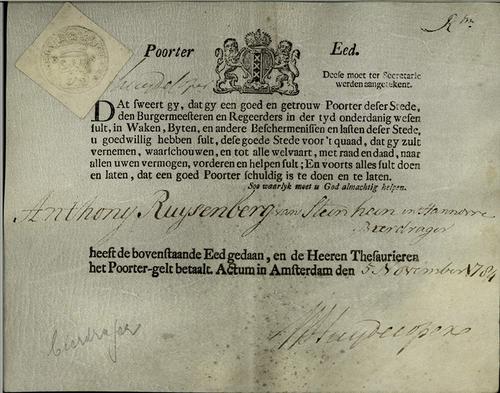 Poorter Eed.
Deese moet ter Secretarie
werden aangetekent.
DAt sweert gy, dat gy een goed en getrouw Poorter deser Stede,
den Burgermeesteren en Regeerders in der tyd onderdanig wesen
sult, in Waken, Byten, en andere Beschermenissen en lasten deser Stede,
u goedwillig hebben sult, dese goede Stede voor 't quaad, dat gy zult
vernemen, waarschouwen, en tot alle welvaart, met raad en daad, naar
allen uwen vermogen, vorderen en helpen sult; En voorts alles sult doen
en laten, dat een goed Poorter schuldig is te doen en te laten.
Soo waarlyk moet u God almachtig helpen.
Anthony Ruysenberg van Steinhein in Hannovre
Bierdrager
heeft de bovenstaande Eed gedaan, en de Heeren Thesaurieren
het Poorter-gelt betaalt. Actum in Amsterdam den 5 November 1784
Huydecoper
bierdrager